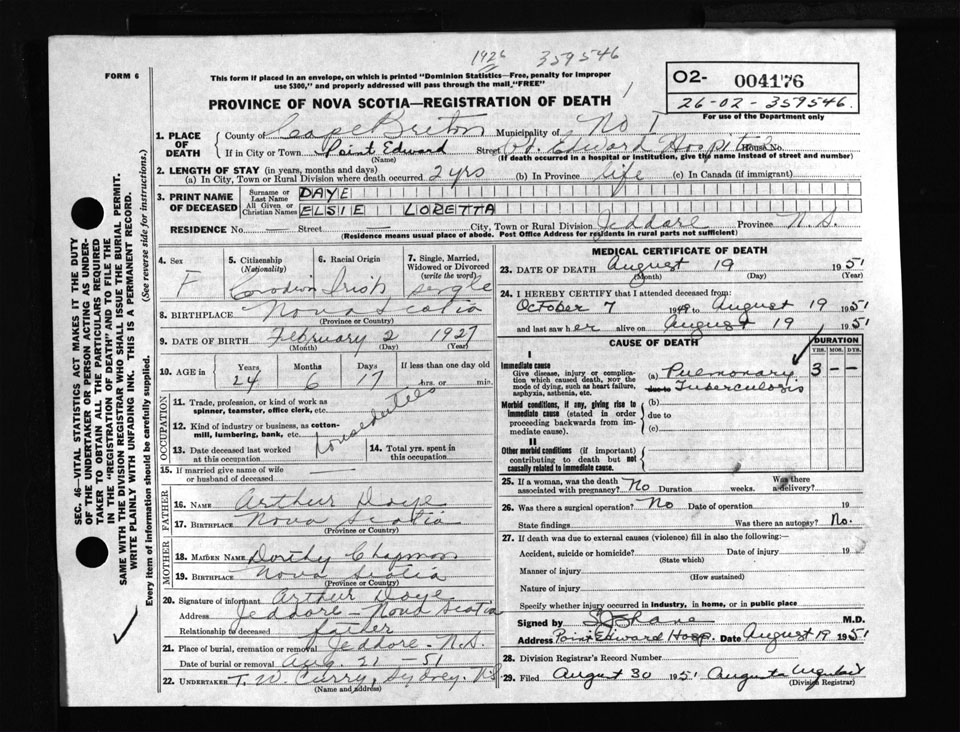 1926 359546
FORM 6
This form if placed in an envelope, on which is printed "Dominion Statistics—Free, penalty for improper
use $300," and properly addressed will pass through the mail, "FREE"
O2- 004176
26-02-359546.
For use of the Department only
PROVINCE OF NOVA SCOTIA—REGISTRATION OF DEATH
1. PLACE OF DEATH County of Cape Breton Municipality of No 1
If in City or Town Point Edward Street Pt. Edward Hospital House No.
(Name) (If death occurred in a hospital or institution, give the name instead of street and number)
2. LENGTH OF STAY (in years, months and days)
(a) In City, Town or Rural Division where death occurred 2 yrs (b) In Province life (c) In Canada (if immigrant)
3. PRINT NAME OF DECEASED Surname or Last Name DAYE
All Given or Christian Names ELSIE LORETTA
RESIDENCE No. — Street — City, Town or Rural Division Jeddore Province N.S.
(Residence means usual place of abode. Post Office Address for residents in rural parts not sufficient)
4. Sex F
5. Citizenship (Nationality) Canadian
6. Racial Origin Irish
7. Single, Married, Widowed or Divorced (write the word) Single
8. BIRTHPLACE Nova Scotia
(Province or Country)
9. DATE OF BIRTH February 2 1927
(Month) (Day) (Year)
10. AGE in Years 24 Months 6 Days 17 If less than one day old hrs. or min.
OCCUPATION
11. Trade, profession, or kind of work as
spinner, teamster, office clerk, etc.
12. Kind of industry or business, as cotton-
mill, lumbering, bank, etc.
Houseduties
13. Date deceased last worked
at this occupation
14. Total yrs. spent in
this occupation
15. If married give name of wife
or husband of deceased —
FATHER
16. Name Arthur Daye
17. Birthplace Nova Scotia
(Province or Country)
MOTHER
18. MAIDEN NAME Dorthy Chapman
19. BIRTHPLACE Nova Scotia
(Province or Country)
20. Signature of informant Arthur Daye
Address Jeddore - Nova Scotia
Relationship to deceased father
21. Place of burial, cremation or removal Jeddore - N.S.
Date of burial or removal Aug. 21 - 51
22. UNDERTAKER T. W. Curry, Sydney, N.S.
(Name and address)
MEDICAL CERTIFICATE OF DEATH
23. DATE OF DEATH August 19 1951
(Month) (Day) (Year)
24. I HEREBY CERTIFY that I attended deceased from:
October 7 1949 to August 19 1951
and last saw her alive on August 19 1951
CAUSE OF DEATH
DURATION
YRS. MOS. DYS.
I
Immediate cause
Give disease, injury or complica-
tion which caused death, NOT the
mode of dying, such as heart failure,
asphyxia, asthenia, etc.
(a) Pulmonary 3 — —
due to Tuberculosis
Morbid conditions, if any, giving rise to
immediate cause (stated in order
proceeding backwards from im-
mediate cause).
(b)
due to
(c)
II
Other morbid conditions (if important)
contributing to death but not
causally related to immediate cause.
25. If a woman, was the death
associated with pregnancy? No Duration weeks. Was there
a delivery?
26. Was there a surgical operation? No Date of operation 19
State findings Was there an autopsy? No.
27. If death was due to external causes (violence) fill in also the following:—
Accident, suicide or homicide? Date of injury 19
(State which)
Manner of injury
(How sustained)
Nature of injury
Specify whether injury occurred in industry, in home, or in public place
Signed by Shane M.D.
Address Point Edward Hosp. Date August 19 1951
28. Division Registrar's Record Number
29. Filed August 30 1951 Augusta
(Division Registrar)
SEC. 46—VITAL STATISTICS ACT MAKES IT THE DUTY
OF THE UNDERTAKER OR PERSON ACTING AS UNDER-
TAKER TO OBTAIN ALL THE PARTICULARS REQUIRED
IN THE "REGISTRATION OF DEATH" AND TO FILE THE
SAME WITH THE DIVISION REGISTRAR WHO SHALL ISSUE THE BURIAL PERMIT.
WRITE PLAINLY WITH UNFADING INK. THIS IS A PERMANENT RECORD.
Every item of information should be carefully supplied. (See reverse side for instructions.)